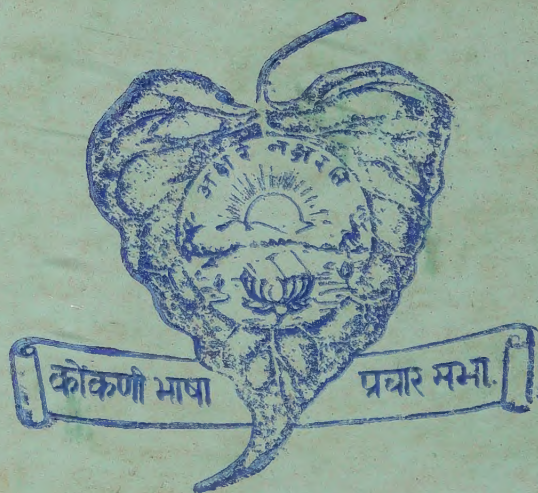 कोंकणी भाषा प्रचार सभा.